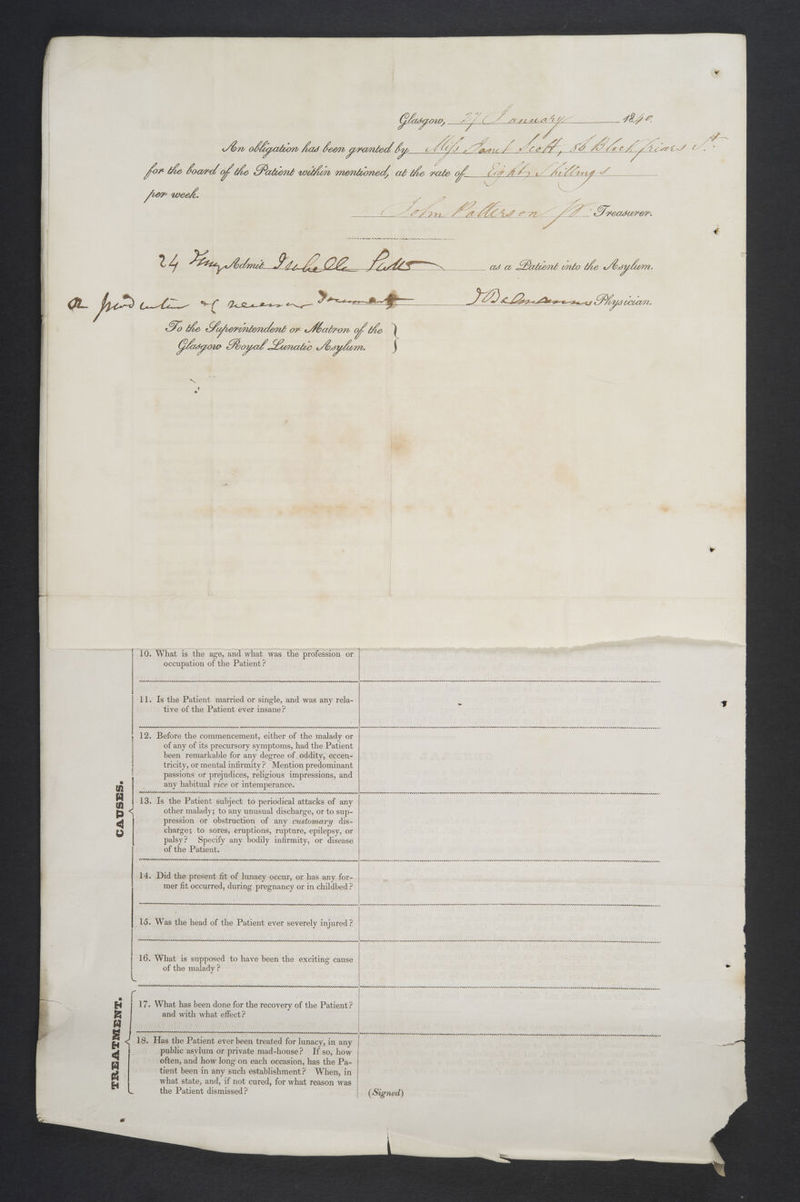 Glasgow, 27 January 1840.
An obligation has been granted by Miss Janet Scott, 86 Blackfriars St.
for the board of the Patient within mentioned, at the rate of Eight Shillings
per week.
John Patterson Treasurer.
24 Admit Isabella as a Patient into the Asylum.
on production of necessary documents Physician.
To the Superintendent or Matron of the
Glasgow Royal Lunatic Asylum.
10. What is the age, and what was the profession or
occupation of the Patient?
11. Is the Patient married or single, and was any rela-
tive of the Patient ever insane?
12. Before the commencement, either of the malady or
of any of its precursory symptoms, had the Patient
been remarkable for any degree of oddity, eccen-
tricity, or mental infirmity? Mention predominant
passions or prejudices, religious impressions, and
any habitual vice or intemperance.
CAUSES.
13. Is the Patient subject to periodical attacks of any
other malady; to any unusual discharge, or to sup-
pression or obstruction of any customary dis-
charge; to sores, eruptions, rupture, epilepsy, or
palsy? Specify any bodily infirmity, or disease
of the Patient.
14. Did the present fit of lunacy occur, or has any for-
mer fit occurred, during pregnancy or in childbed?
15. Was the head of the Patient ever severely injured?
16. What is supposed to have been the exciting cause
of the malady?
TREATMENT.
17. What has been done for the recovery of the Patient?
and with what effect?
18. Has the Patient ever been treated for lunacy, in any
public asylum or private mad-house? If so, how
often, and how long on each occasion, has the Pa-
tient been in any such establishment? When, in
what state, and, if not cured, for what reason was
the Patient dismissed?
(Signed)